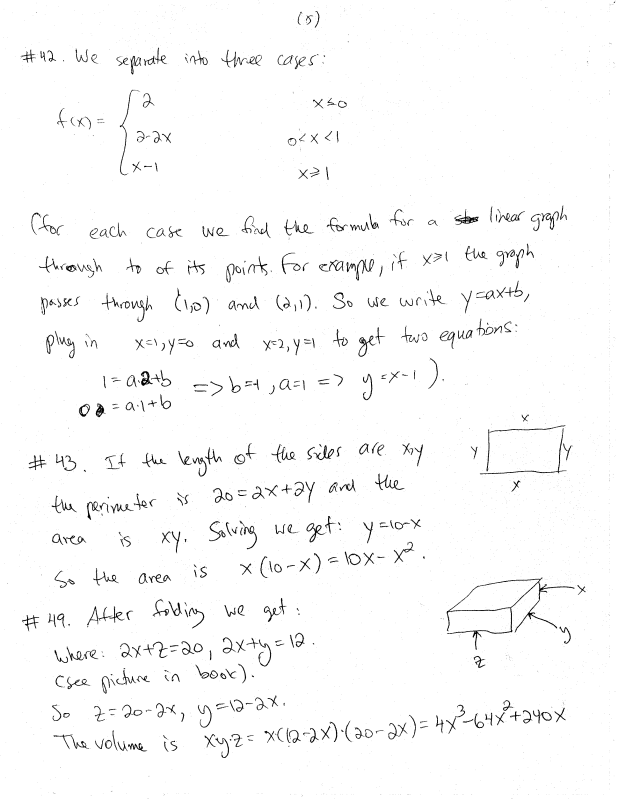 (5)
#42. We separate into three cases:
f(x) = { 2 x≤0
2-2x 0<x<1
x-1 x≥1
(for each case we find the formula for a linear graph
through to of its points. For example, if x≥1 the graph
passes through (1,0) and (2,1). So we write y=ax+b,
plug in x=1, y=0 and x=2, y=1 to get two equations:
1 = a·2+b => b=-1, a=1 => y=x-1 ).
0 = a·1+b
x
#43. If the length of the sides are x,y y y
the perimeter is 20=2x+2y and the x
area is xy. Solving we get: y=10-x
So the area is x(10-x) = 10x-x².
#49. After folding we get: x
where: 2x+z=20, 2x+y=12. y
(see picture in book). z
So z=20-2x, y=12-2x.
The volume is xy·z = x·(12-2x)·(20-2x) = 4x³-64x²+240x